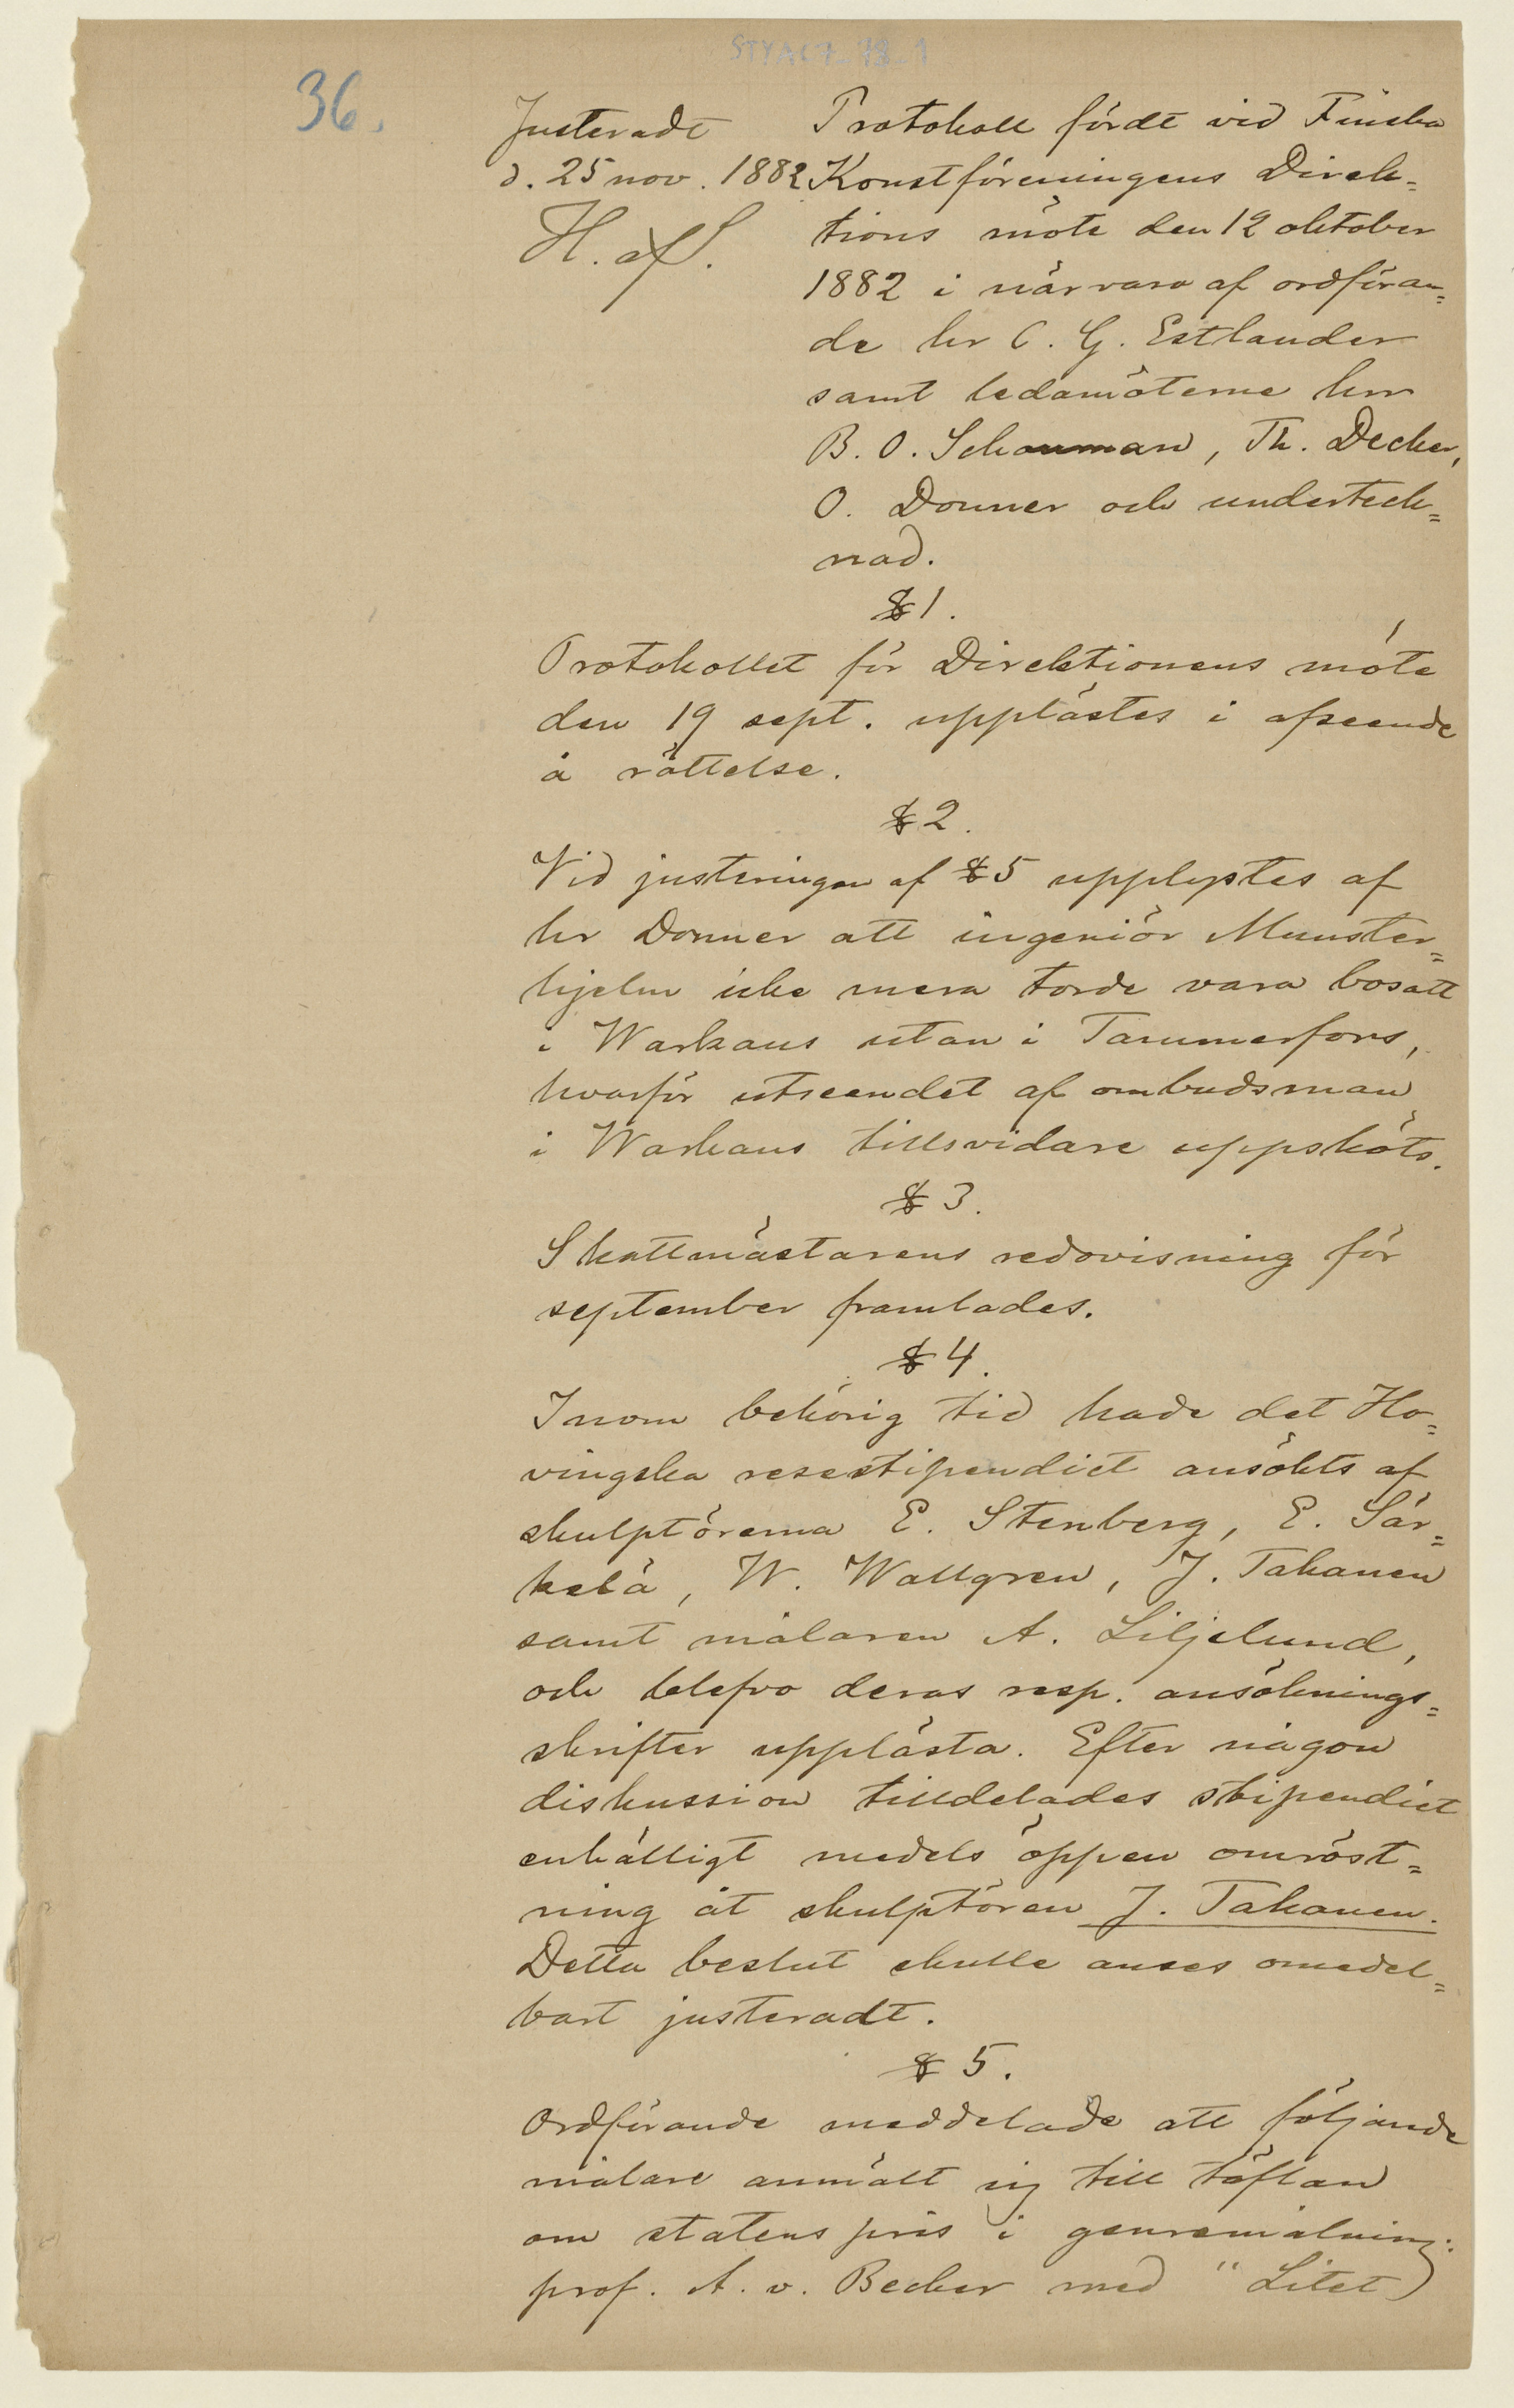 STYAC7_78_1
36.
Justeradt
d. 25 nov. 1882
H. af S.
Protokoll fördt vid Finska
Konstföreningens Direk=
tions möte den 12 oktober
1882 i närvaro af ordföran=
de hr C. G. Estlander
samt ledamöterne hrr
B. O. Schauman, Th. Decker,
O. Donner och underteck=
nad.
§ 1.
Protokollet för Direktionens möte
den 19 sept. upplästes i afseende
å rättelse.
§ 2.
Vid justeringen af § 5 upplystes af
hr Donner att ingeniör Munster=
hjelm icke mera torde vara bosatt
i Warkaus utan i Tammerfors,
hvarför utseendet af ombudsman
i Warkaus tillsvidare uppsköts.
§ 3.
Skattmästarens redovisning för
september framlades.
§ 4.
Inom behörig tid hade det Ho=
vingska resestipendiet ansökts af
skulptörerna E. Stenberg, E. Sär=
kelä, W. Wallgren, J. Takanen
samt målaren A. Liljelund,
och blefvo deras resp. ansöknings=
skrifter upplästa. Efter någon
diskussion tilldelades stipendiet
enhälligt medels öppen omröst=
ning åt skulptören J. Takanen.
Detta beslut skulle anses omedel=
bart justeradt.
§ 5.
Ordförande meddelade att följande
målare anmält sig till täflan
om statens pris i genremålning:
prof. A. v. Becker med "Litet